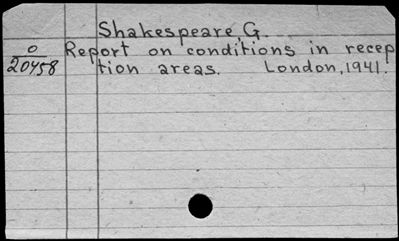 Shakespeare, G.
0
20458
Report on conditions in recep
tion areas. London, 1941.